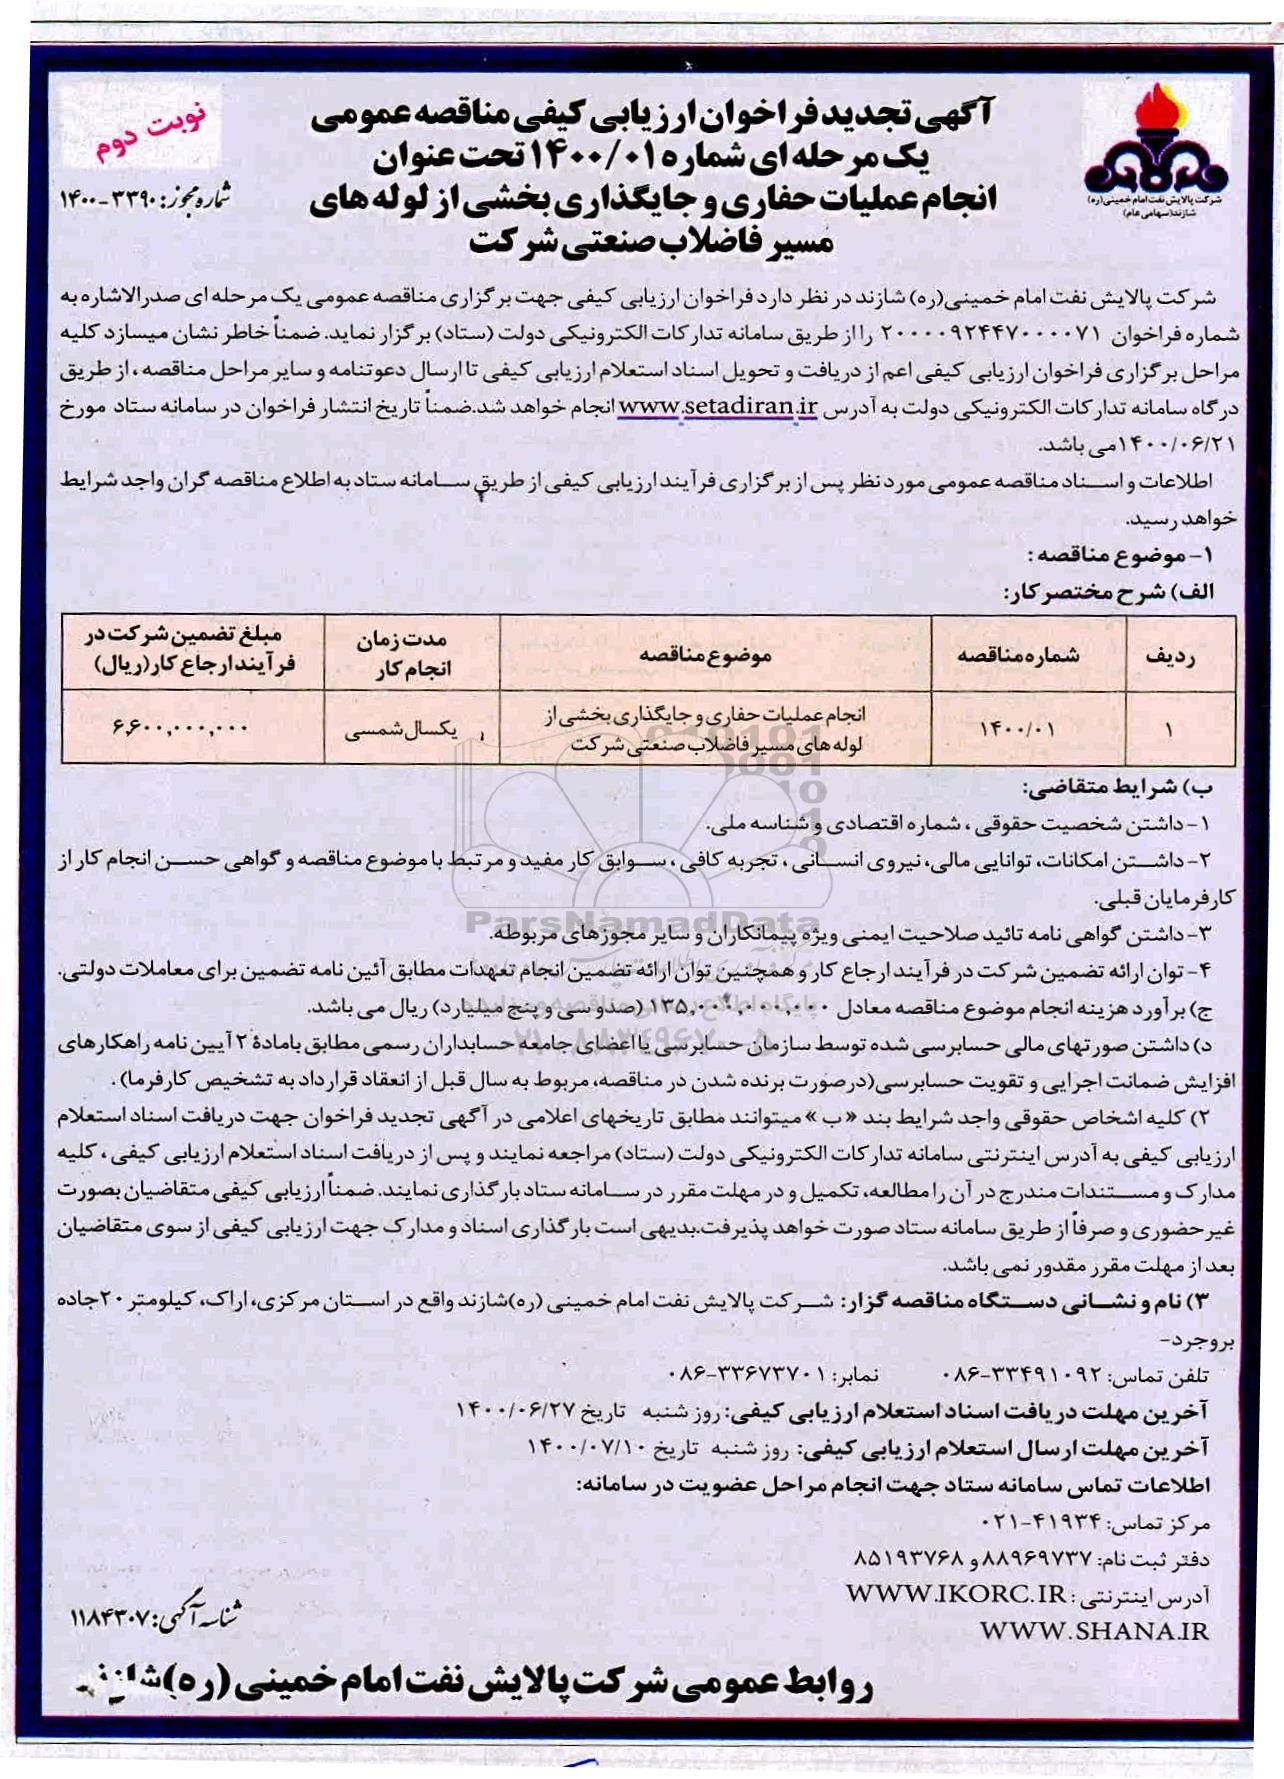 آگهی تجدید فراخوان ارزیابی کیفی مناقصه عمومی
یک مرحله ای شماره ۱۴۰۰/۰۱ تحت عنوان
انجام عملیات حفاری و جایگذاری بخشی از لوله های
مسیر فاضلاب صنعتی شرکت
نوبت دوم
شماره مجوز: ۳۳۹۰-۱۴۰۰
شرکت پالایش نفت امام خمینی(ره)
شازند(سهامی عام)
شرکت پالایش نفت امام خمینی(ره) شازند در نظر دارد فراخوان ارزیابی کیفی جهت برگزاری مناقصه عمومی یک مرحله ای صدرالاشاره به
شماره فراخوان ۲۰۰۰۰۹۲۴۴۷۰۰۰۰۷۱ را از طریق سامانه تدارکات الکترونیکی دولت (ستاد) برگزار نماید. ضمناً خاطر نشان میسازد کلیه
مراحل برگزاری فراخوان ارزیابی کیفی اعم از دریافت و تحویل اسناد استعلام ارزیابی کیفی تا ارسال دعوتنامه و سایر مراحل مناقصه، از طریق
درگاه سامانه تدارکات الکترونیکی دولت به آدرس www.setadiran.ir انجام خواهد شد.ضمناً تاریخ انتشار فراخوان در سامانه ستاد مورخ
۱۴۰۰/۰۶/۲۱می باشد.
اطلاعات و اسناد مناقصه عمومی مورد نظر پس از برگزاری فرآیند ارزیابی کیفی از طریق سامانه ستاد به اطلاع مناقصه گران واجد شرایط
خواهد رسید.
۱- موضوع مناقصه :
الف) شرح مختصر کار:
ردیف شماره مناقصه موضوع مناقصه مدت زمان انجام کار مبلغ تضمین شرکت در فرآیند ارجاع کار(ریال)
۱ ۱۴۰۰/۰۱ انجام عملیات حفاری و جایگذاری بخشی از لوله های مسیر فاضلاب صنعتی شرکت یکسال شمسی ۶,۶۰۰,۰۰۰,۰۰۰
ب) شرایط متقاضی:
۱- داشتن شخصیت حقوقی ، شماره اقتصادی و شناسه ملی.
۲- داشتن امکانات، توانایی مالی، نیروی انسانی ، تجربه کافی ، سوابق کار مفید و مرتبط با موضوع مناقصه و گواهی حسن انجام کار از
کارفرمایان قبلی.
ParsNamadData
۳- داشتن گواهی نامه تائید صلاحیت ایمنی ویژه پیمانکاران و سایر مجوزهای مربوطه.
۴- توان ارائه تضمین شرکت در فرآیند ارجاع کار و همچنین توان ارائه تضمین انجام تعهدات مطابق آئین نامه تضمین برای معاملات دولتی.
ج) برآورد هزینه انجام موضوع مناقصه معادل ۱۳۵,۰۰۰,۰۰۰,۰۰۰ (صدو سی و پنج میلیارد) ریال می باشد.
د) داشتن صورتهای مالی حسابرسی شده توسط سازمان حسابرسی یا اعضای جامعه حسابداران رسمی مطابق بامادۀ ۲ آیین نامه راهکارهای
افزایش ضمانت اجرایی و تقویت حسابرسی(درصورت برنده شدن در مناقصه، مربوط به سال قبل از انعقاد قرارداد به تشخیص کارفرما) .
۲) کلیه اشخاص حقوقی واجد شرایط بند «ب» میتوانند مطابق تاریخهای اعلامی در آگهی تجدید فراخوان جهت دریافت اسناد استعلام
ارزیابی کیفی به آدرس اینترنتی سامانه تدارکات الکترونیکی دولت (ستاد) مراجعه نمایند و پس از دریافت اسناد استعلام ارزیابی کیفی ، کلیه
مدارک و مستندات مندرج در آن را مطالعه، تکمیل و در مهلت مقرر در سامانه ستاد بارگذاری نمایند. ضمناً ارزیابی کیفی متقاضیان بصورت
غیر حضوری و صرفاً از طریق سامانه ستاد صورت خواهد پذیرفت.بدیهی است بارگذاری اسناد و مدارک جهت ارزیابی کیفی از سوی متقاضیان
بعد از مهلت مقرر مقدور نمی باشد.
۳) نام و نشانی دستگاه مناقصه گزار: شرکت پالایش نفت امام خمینی (ره)شازند واقع در استان مرکزی، اراک، کیلومتر ۲۰جاده
بروجرد-
تلفن تماس: ۳۳۴۹۱۰۹۲-۰۸۶ نمابر: ۳۳۶۷۳۷۰۱-۰۸۶
آخرین مهلت دریافت اسناد استعلام ارزیابی کیفی: روز شنبه تاریخ ۱۴۰۰/۰۶/۲۷
آخرین مهلت ارسال استعلام ارزیابی کیفی: روز شنبه تاریخ ۱۴۰۰/۰۷/۱۰
اطلاعات تماس سامانه ستاد جهت انجام مراحل عضویت در سامانه:
مرکز تماس: ۴۱۹۳۴-۰۲۱
دفتر ثبت نام: ۸۸۹۶۹۷۳۷و ۸۵۱۹۳۷۶۸
آدرس اینترنتی : WWW.IKORC.IR
WWW.SHANA.IR
شناسه آگهی: ۱۱۸۴۳۰۷
روابط عمومی شرکت پالایش نفت امام خمینی (ره)شازند